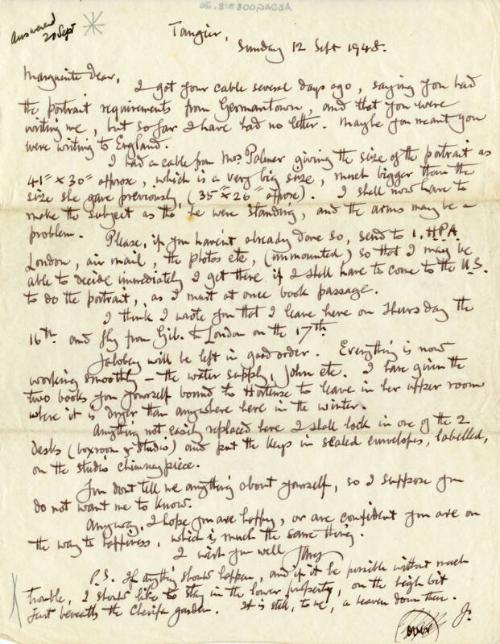 answered
20 Sept
Tangier,
Sunday 12 Sept 1948.
Marguerite Dear,
I got your cable several days ago, saying you had
the portrait requirements from Germantown, and that you were
writing me, but so far I have had no letter. Maybe you meant you
were writing to England.
I had a cable from Mrs Palmer giving the size of the portrait as
41" x 30" approx, which is a very big size, much bigger than the
size she gave previously, (35" x 26" approx). I shall now have to
make the subject as tho he were standing, and the arms may be a
problem.
Please, if you havent already done so, send to 1. H.P.A.
London, air mail, the photos etc, (unmounted) so that I may be
able to decide immediately I get there if I shall have to come to the U.S.
to do the portrait, as I must at once book passage.
I think I wrote you that I leave here on Thursday the
16th and fly from Gib. to London on the 17th.
will be left in good order. Everything is now
working smoothly — the water supply, John etc. I have given the
two books you yourself bound to Hortense to leave in her upper room
where it is dryer than anywhere here in the winter.
Anything not easily replaced here I shall lock in one of the 2
desks (boxroom & studio) and put the keys in sealed envelopes, labelled,
on the studio chimney piece.
You dont tell me anything about yourself, so I suppose you
do not want me to know.
Anyway, I hope you are happy, or are confident you are on
the way to happiness, which is much the same thing.
I wish you well James
P.S. If anything should happen and if it be possible without much
trouble, I should like to stay in the lower property, on the high bit
just beneath the Cherifa garden. It is still, to me, a heaven down there.
J.
over